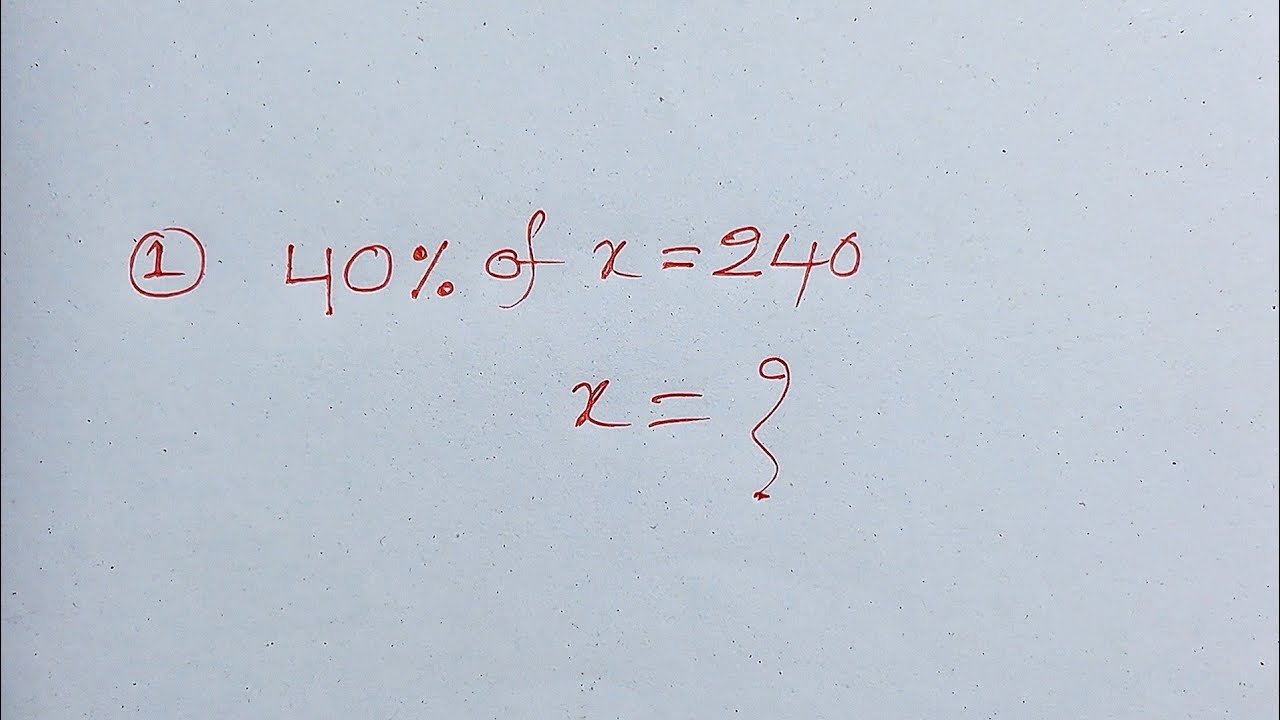 ① 40% of x = 240
x = ?